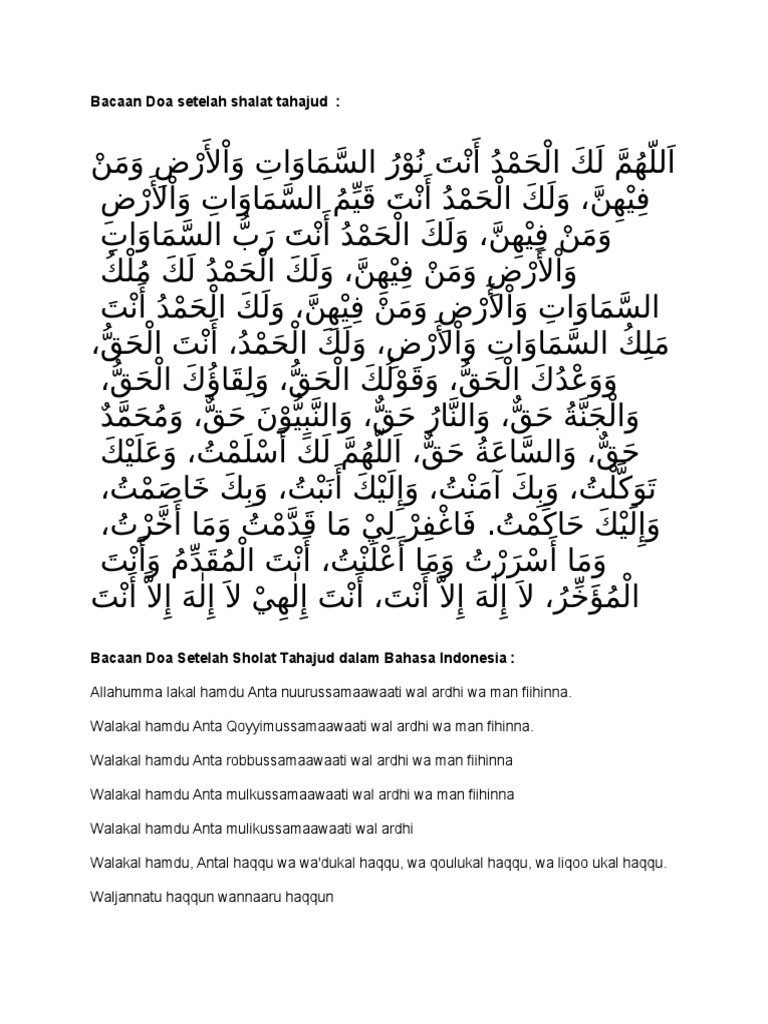 Bacaan Doa setelah shalat tahajud :
اَللّهُمَّ لَكَ الْحَمْدُ أَنْتَ نُوْرُ السَّمَاوَاتِ وَاْلأَرْضِ وَمَنْ
فِيْهِنَّ، وَلَكَ الْحَمْدُ أَنْتَ قَيِّمُ السَّمَاوَاتِ وَاْلأَرْضِ
وَمَنْ فِيْهِنَّ، وَلَكَ الْحَمْدُ أَنْتَ رَبُّ السَّمَاوَاتِ
وَاْلأَرْضِ وَمَنْ فِيْهِنَّ، وَلَكَ الْحَمْدُ لَكَ مُلْكُ
السَّمَاوَاتِ وَاْلأَرْضِ وَمَنْ فِيْهِنَّ، وَلَكَ الْحَمْدُ أَنْتَ
مَلِكُ السَّمَاوَاتِ وَاْلأَرْضِ، وَلَكَ الْحَمْدُ، أَنْتَ الْحَقُّ،
وَوَعْدُكَ الْحَقُّ، وَقَوْلُكَ الْحَقُّ، وَلِقَاؤُكَ الْحَقُّ،
وَالْجَنَّةُ حَقٌّ، وَالنَّارُ حَقٌّ، وَالنَّبِيُّوْنَ حَقٌّ، وَمُحَمَّدٌ
حَقٌّ، وَالسَّاعَةُ حَقٌّ، اَللّهُمَّ لَكَ أَسْلَمْتُ، وَعَلَيْكَ
تَوَكَّلْتُ، وَبِكَ آمَنْتُ، وَإِلَيْكَ أَنَبْتُ، وَبِكَ خَاصَمْتُ،
وَإِلَيْكَ حَاكَمْتُ. فَاغْفِرْ لِيْ مَا قَدَّمْتُ وَمَا أَخَّرْتُ،
وَمَا أَسْرَرْتُ وَمَا أَعْلَنْتُ، أَنْتَ الْمُقَدِّمُ وَأَنْتَ
الْمُؤَخِّرُ، لاَ إِلٰهَ إِلاَّ أَنْتَ، أَنْتَ إِلٰهِيْ لاَ إِلٰهَ إِلاَّ أَنْتَ
Bacaan Doa Setelah Sholat Tahajud dalam Bahasa Indonesia :
Allahumma lakal hamdu Anta nuurussamaawaati wal ardhi wa man fiihinna.
Walakal hamdu Anta Qoyyimussamaawaati wal ardhi wa man fihinna.
Walakal hamdu Anta robbussamaawaati wal ardhi wa man fiihinna
Walakal hamdu Anta mulkussamaawaati wal ardhi wa man fiihinna
Walakal hamdu Anta mulikussamaawaati wal ardhi
Walakal hamdu, Antal haqqu wa wa'dukal haqqu, wa qoulukal haqqu, wa liqoo ukal haqqu.
Waljannatu haqqun wannaaru haqqun